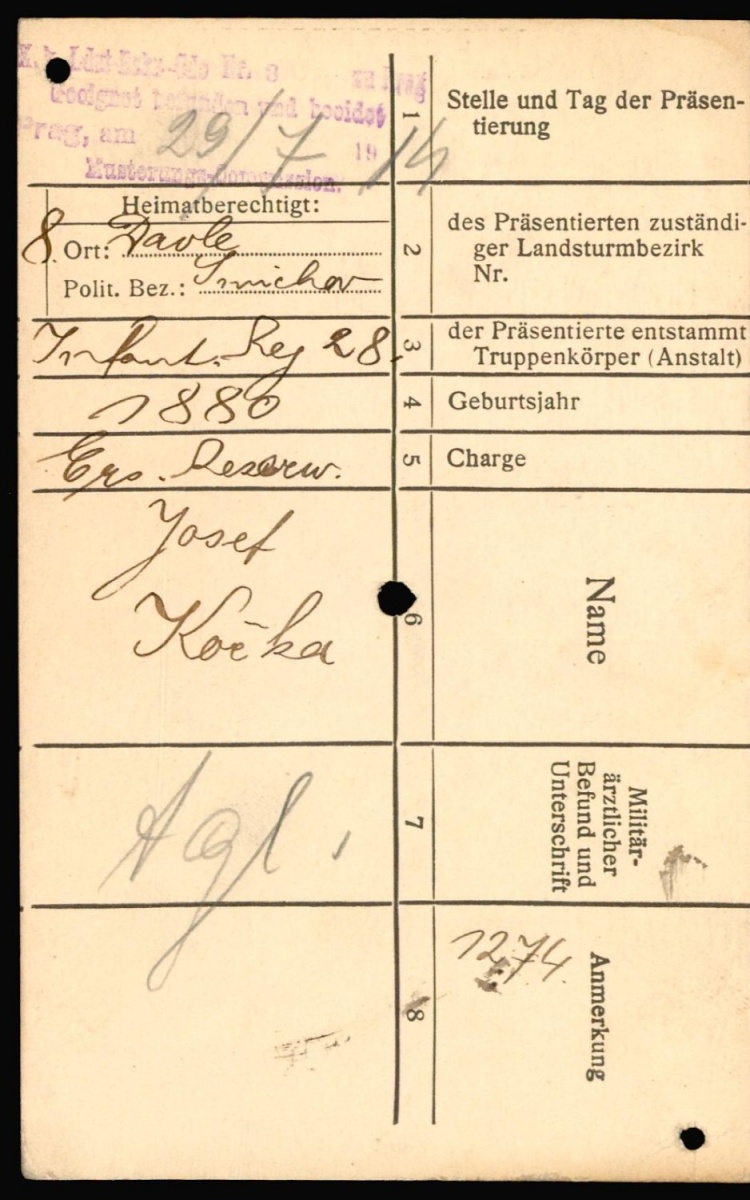 K. k. Ldst-Bzks-Cdo Nr. 8 zu Prag
Geeignet befunden und beeidet
Prag, am 29/7 1914
Musterungs-Commission.
1
Stelle und Tag der Präsen-
tierung
Heimatberechtigt:
8. Ort: Davle
Polit. Bez.: Smichov
2
des Präsentierten zuständi-
ger Landsturmbezirk
Nr.
Infant. Reg 28.
3
der Präsentierte entstammt
Truppenkörper (Anstalt)
1880
4
Geburtsjahr
Ers. Reserw.
5
Charge
Josef
Kočka
6
Name
7
Militär-
ärztlicher
Befund und
Unterschrift
8
Anmerkung
1274.